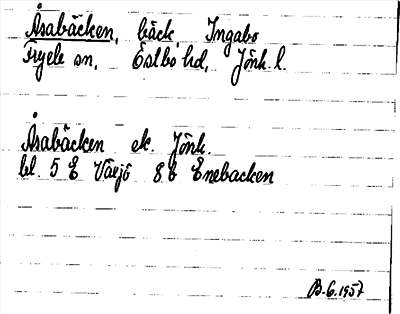 Åsabäcken, bäck, Ingabo
Fryele sn, Östbo hd, Jönk. l.
Åsabäcken ek. Jönk.
bl. 5 E Växjö 8 b Enebacken
B-G. 1957